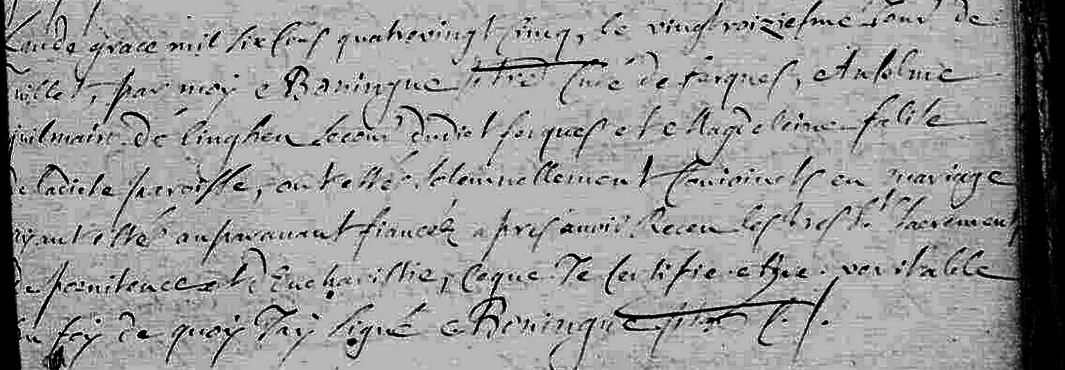 Lande grace mil six cens quatrevingt cinq, le vingtroiziesme jour de
juillet, par moy Boningue ptre Curé de ferques, Antoine
guilmain de linghen secours dudict ferques et Magdeleine
de ladicte paroisse, ont estés solemnellement Conjoincts en mariage
ayant estés auparavant fiancéz apres avoir Receu les tres Sts sacrement
de pœnitence et d'Eucharistie, Ceque Je Certifie estre veritable
en foy de quoy Jay signé Boningue ptre